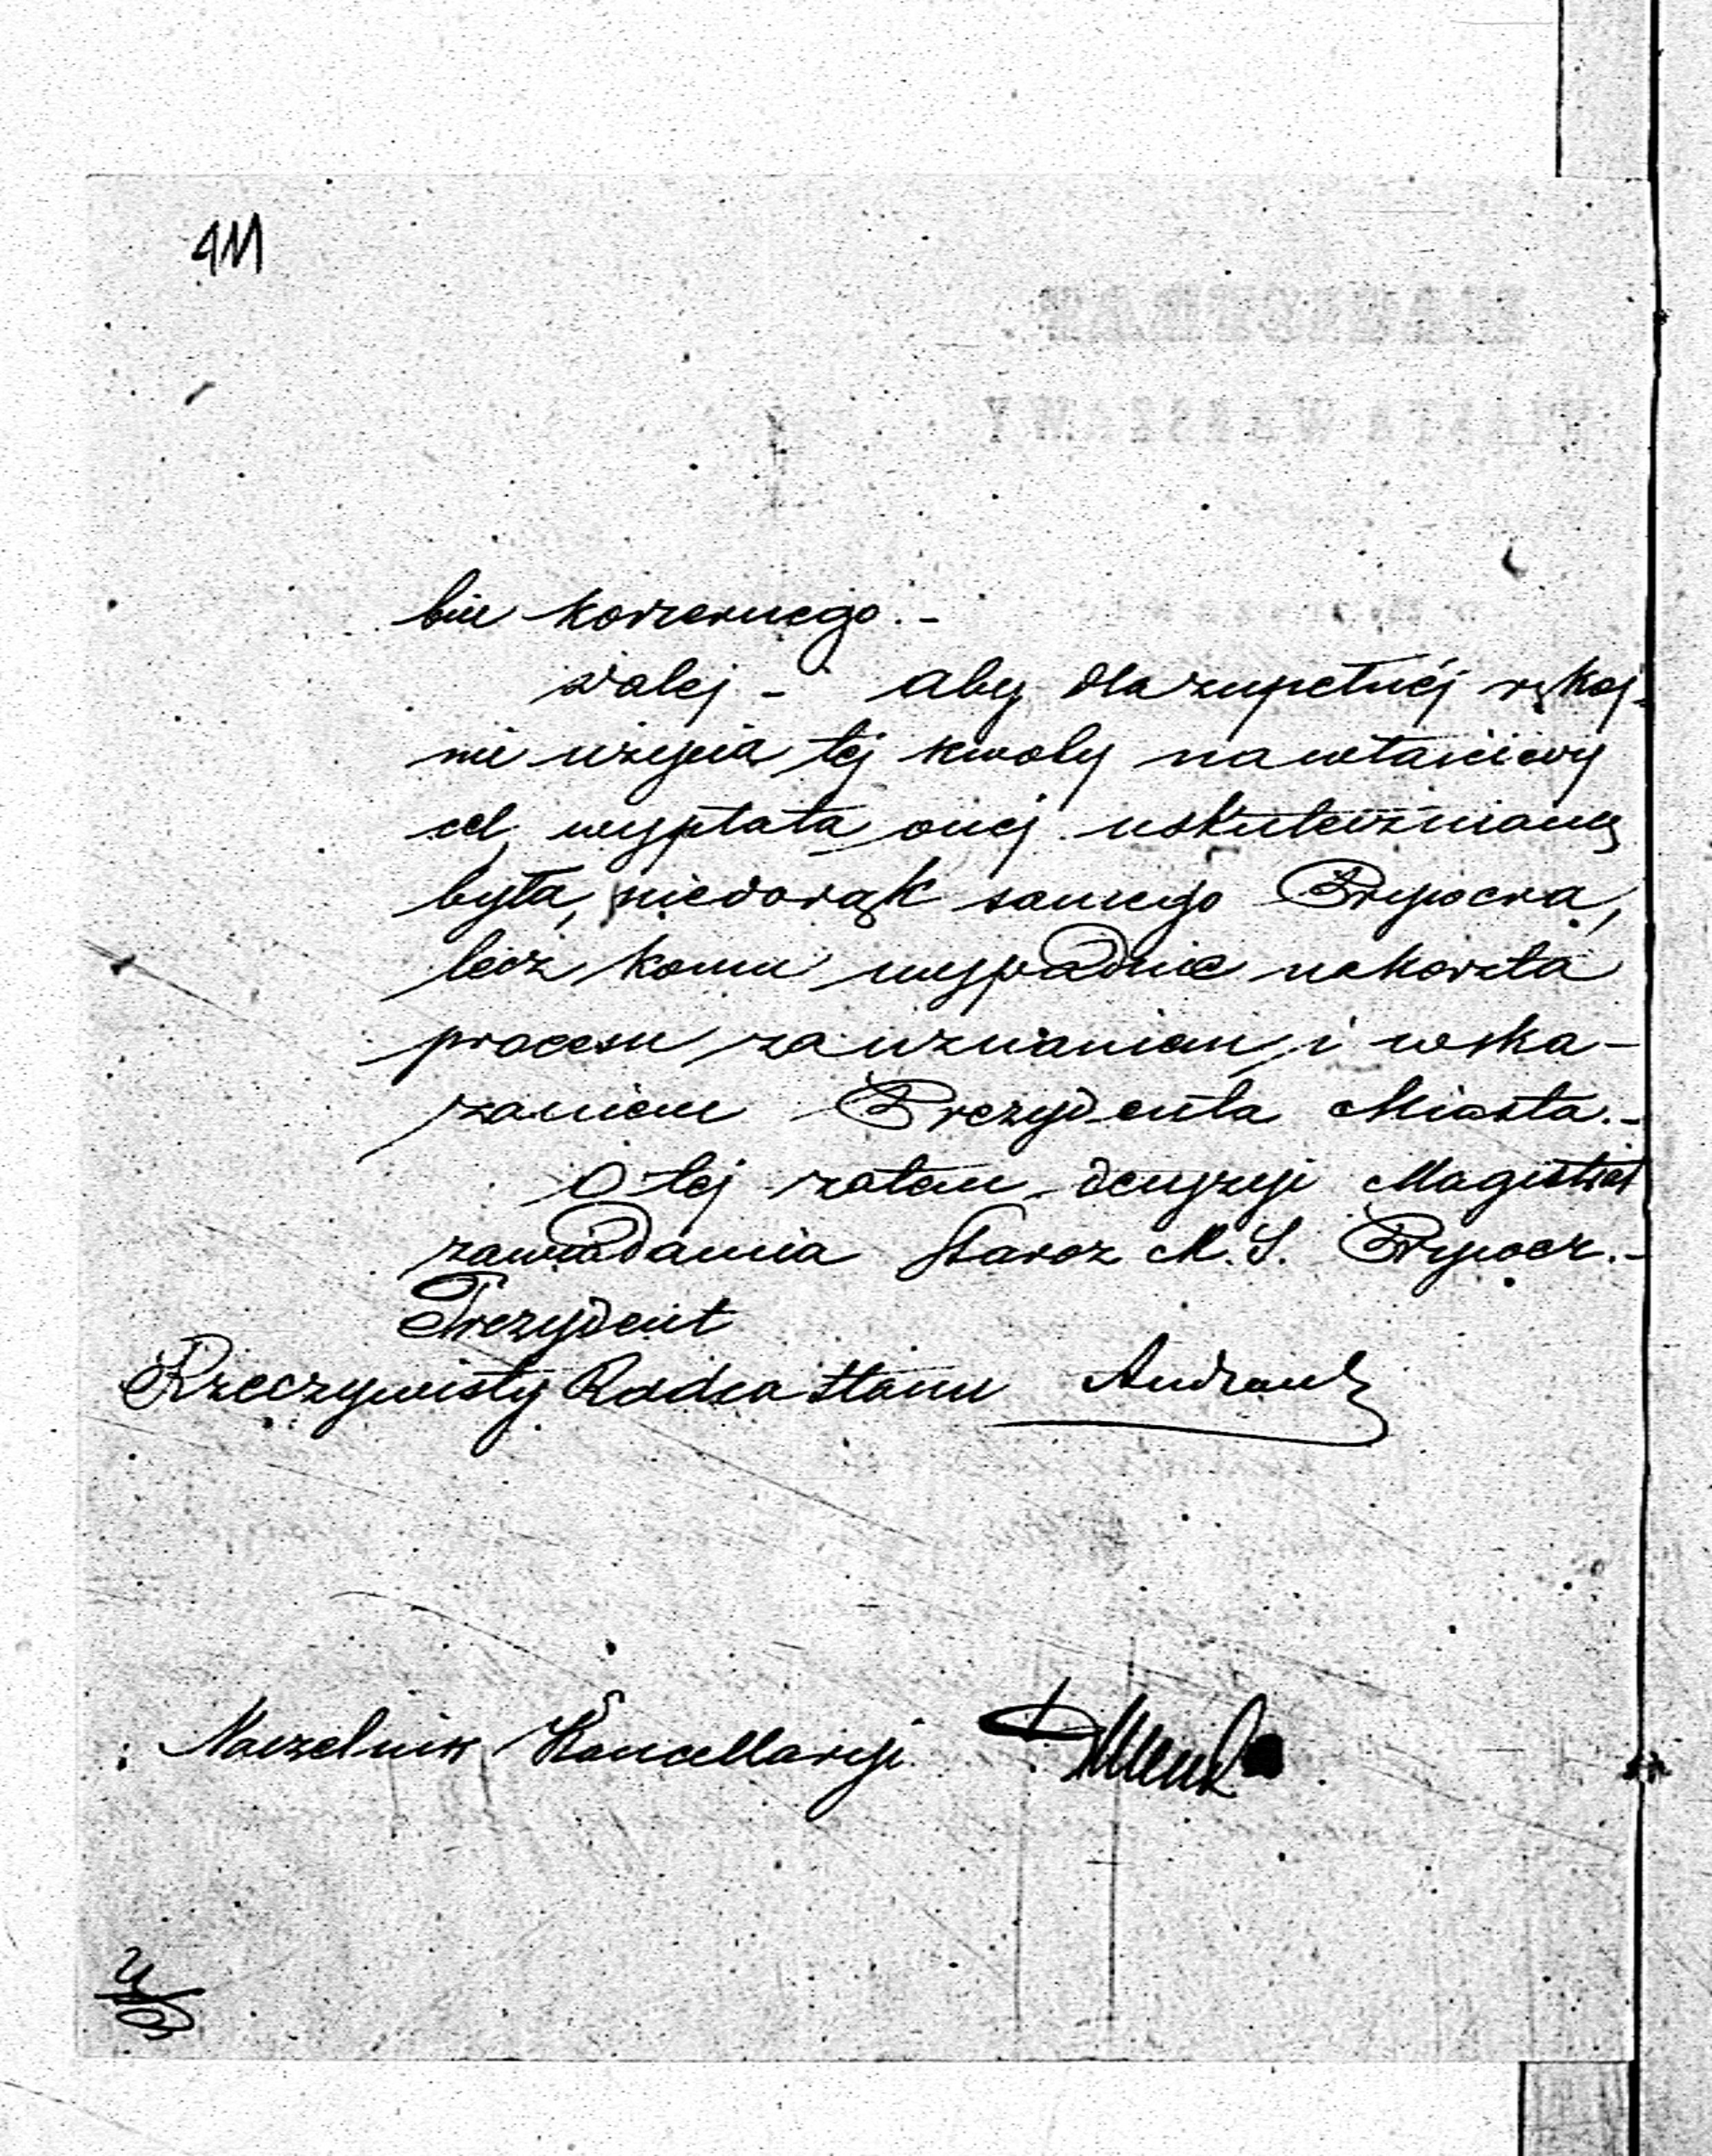 bie korzennego.-
dalej - aby dla zupełnéj rękoj-
mi użycia tej kwoty na właściwy
cel, wypłata onej uskutecznianą
była, nie do rąk samego Przypocza,
lecz komu wypadnie na koszta
procesu za uznaniem i wska-
zaniem Prezydenta Miasta.-
O tej zatem decyzyi Magistrat
zawiadamia Staroz M. S.
Prezydent
Rzeczywisty Radca Stanu
Naczelnik Kancellaryi